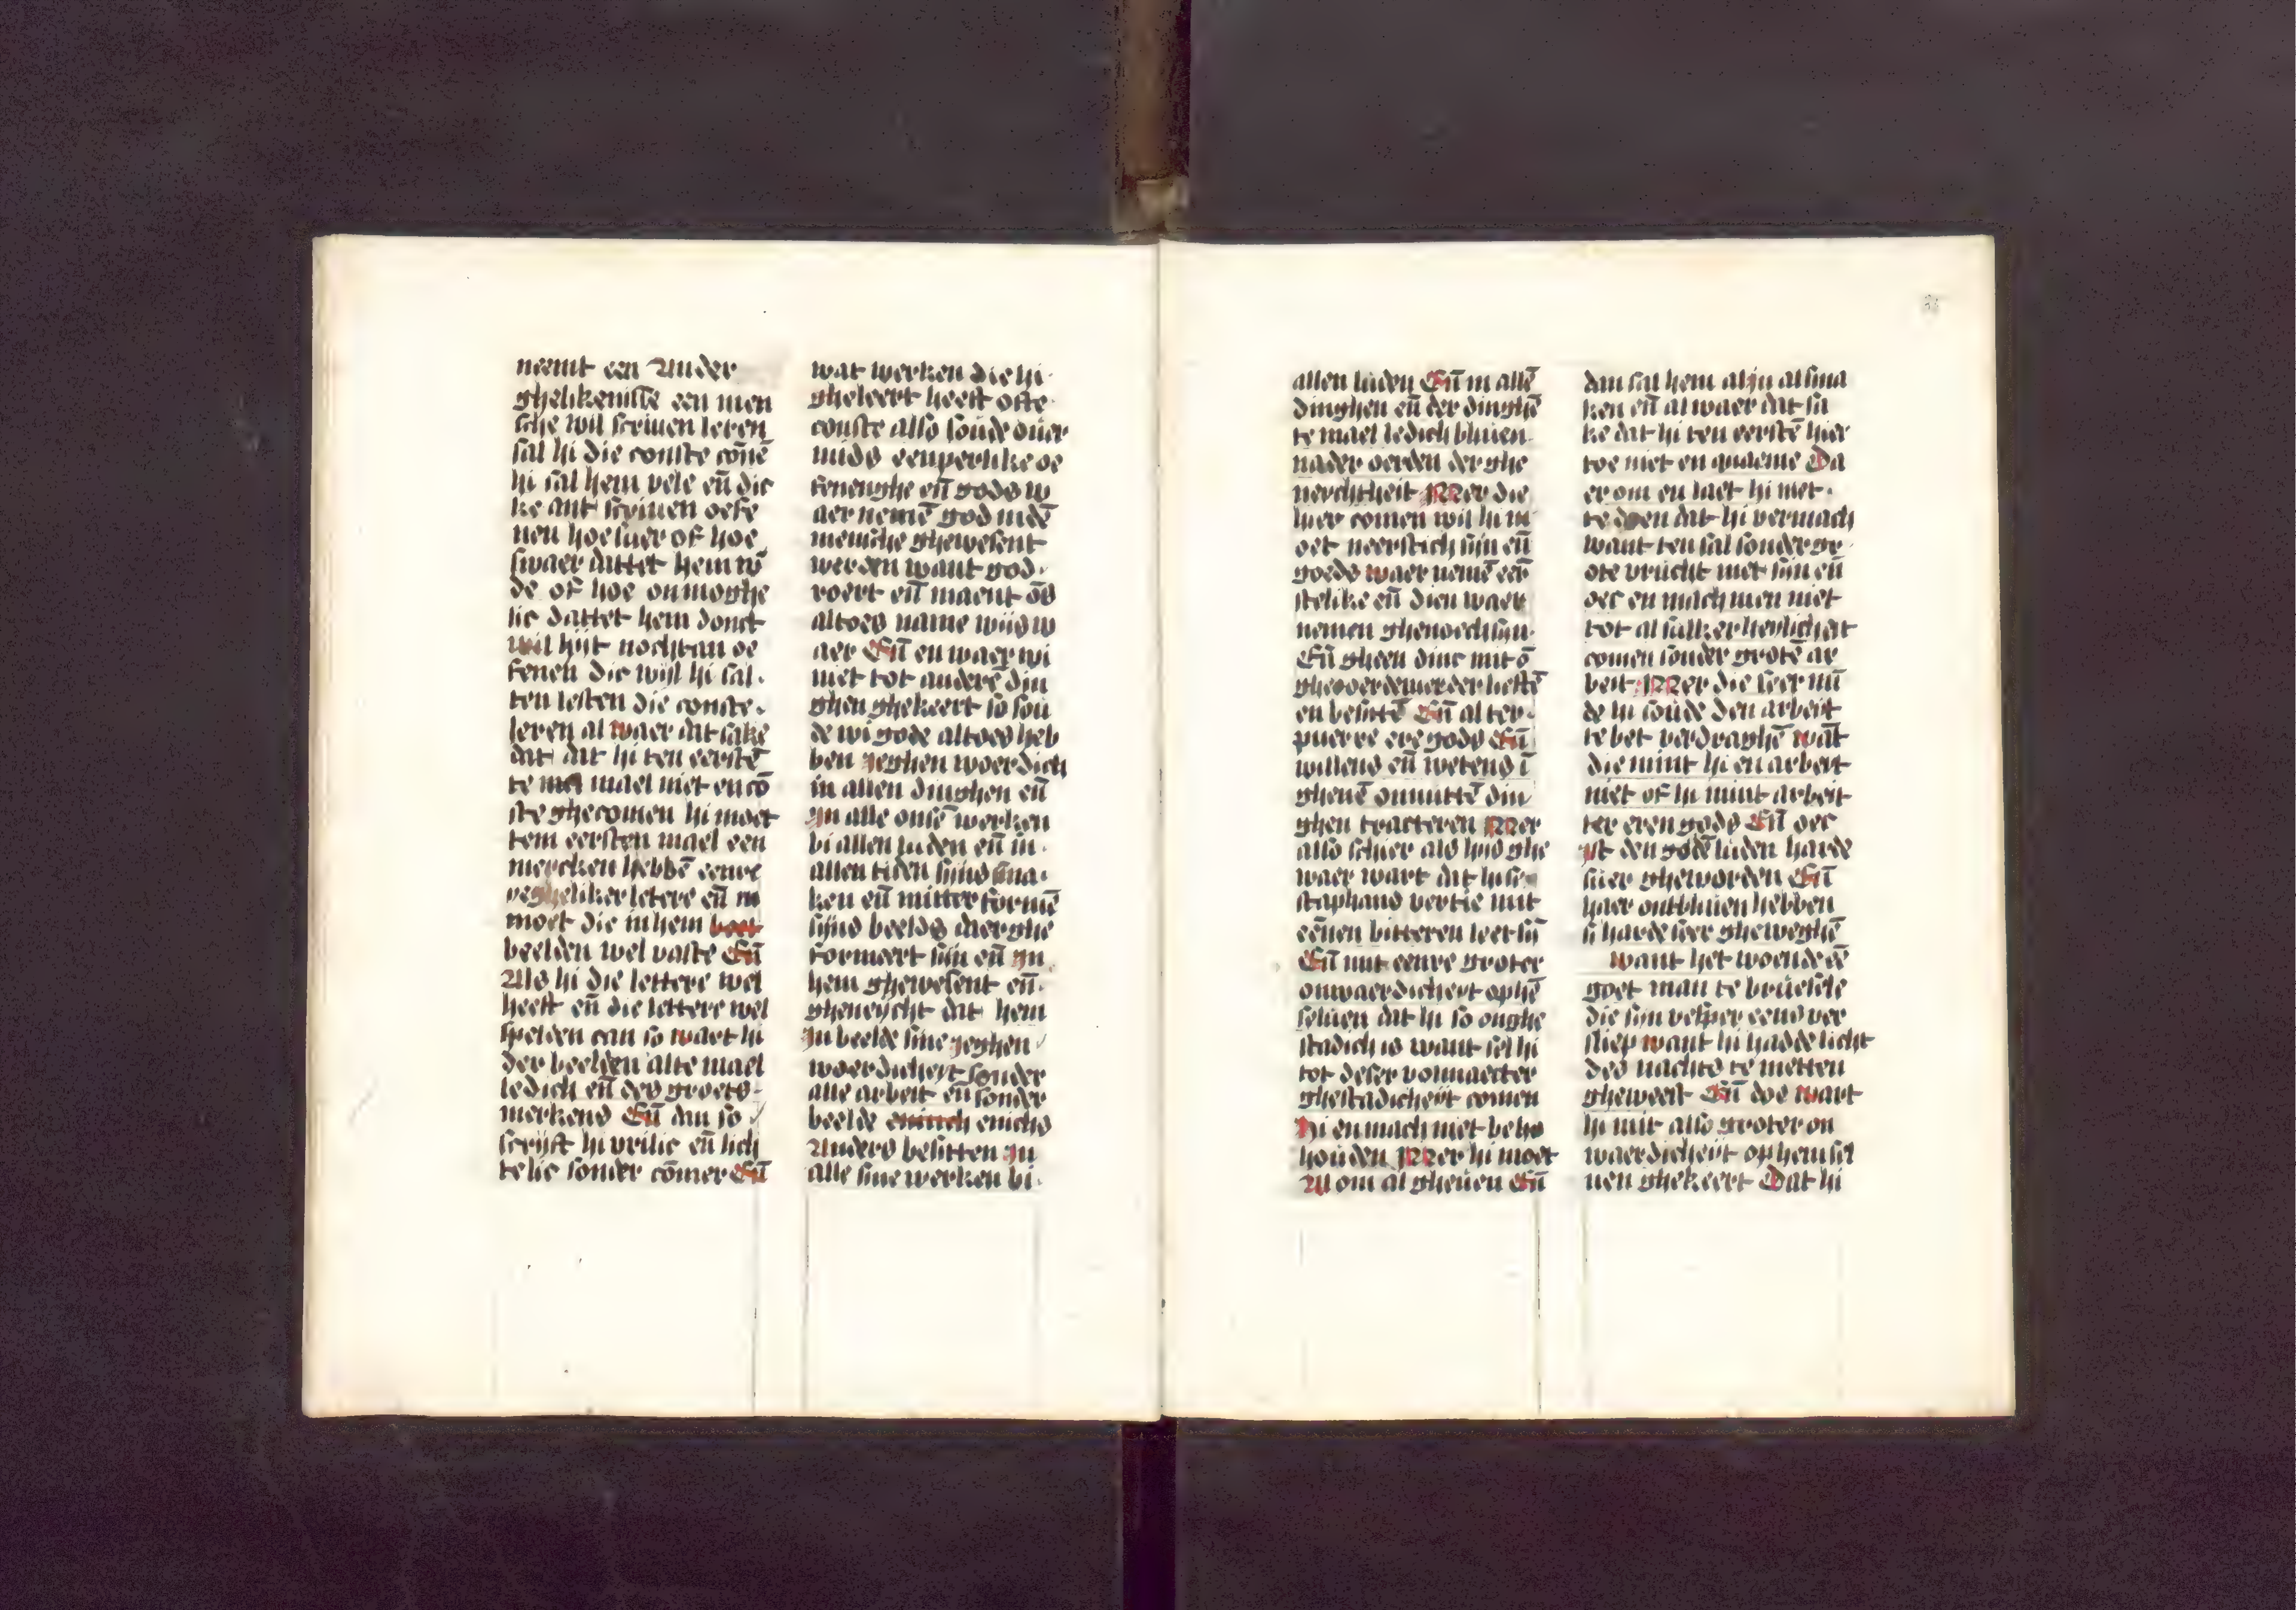 neemt een Ander
ghelikenisse een men
sche wil scriuen leren
sal hi die conste cōnē
hi sal hem vele en̄ dic
ke ant scriuen oefe
nen hoe suer of hoe
swaer dattet hem w̄
de of hoe onmoghe
lic dattet hem donct
wil hijt nochtan oe
fenen die wijl hi sal
ten lesten die conste
leren al waer dat sake
dat dat hi ten eerstē
te mael niet en cō
ste ghecomen hi moet
tem eersten mael een
mercken hebbē eenre
yegheliker letere en̄ m
moet die in hem
beelden wel vaste En̄
Als hi die lettere wel
heeft en̄ die lettere wel
spelden can so waert hi
der beelden alte mael
ledich en̄ des groets
merkens En̄ dan so
scrijft hi vrilic en̄ lich
telic sonder cōmer En̄
wat werken die hi
gheleert heeft ofte
conste also soude ouer
mids eenperlike oe
fenenghe en̄ gods w
aer nemē god in dē
mensche ghewesent
werden want god
roert en̄ maent ōs
altoes name wijs w
aer En̄ en waer wi
niet tot anderē din
ghen ghekeert so sou
de wi gode altoes heb
ben jeghen woerdich
in allen dinghen en̄
jn alle onsē werken
bi allen luden en̄ in
allen tiden sijns sma
ken en̄ mitter formē
sijns beelds daer ghe
formeert sijn en̄ jn
hem ghewesent en̄
gheneycht dat hem
jn beelde sine jeghen
woerdicheyt sonder
alle arbeit en̄ sonder
beelde enich enichs
Anders besitten jn
alle sine werken bi
allen luden En̄ in allē
dinghen en̄ der dinghē
te mael ledich bliuen
nader oerden der ghe
nerchtheit Mer die
hier comen wil hi m
oet neerstich sijn en̄
goeds waer nemē eer
stelike en̄ dien waer
nemen ghenoech sijn
En̄ gheen dinc mit ō
gheoerdenierder liefte
en besittē En̄ al ter
puerre ere gods En̄
willens en̄ wetens ī
gheuē onnuttē din
ghen tracteren Mer
also schier als hijs ghe
waer wart dat hi se
staphans vertie mit
eēnen bitteren leet sī
En̄ mit eenre groter
onwaerdicheyt op hē
seluen dat hi so onghe
stadich is want sel hi
tot deser volmaecter
ghestadicheyt comen
Hi en mach niet beho
houden Mer hi moet
Al om al gheuen En̄
dan sal hem al in al sma
ken en̄ al waer dat sa
ke dat hi ten eerstē hier
toe niet en quaeme Da
er om en laet hi niet
te doen dat hi vermach
want ten sal sonder gr
ote vrucht niet sijn en̄
oec en mach men niet
tot al sulker heylicheit
comen sonder grotē ar
beit Mer die seer min
de hi soude den arbeyt
te bet verdraghē wāt
die mint hi en arbeyt
niet of hi mint arbeit
ter eren gods En̄ oec
jst den godē luden harde
suer gheworden En̄
haer ontbliuen hebben
si harde seer gheweghē
want het woende eē
goet man te bruesele
die sijn vesper eens ver
sliep want hi hadde licht
des nachts te metten
gheweest En̄ doe wart
hi mit also groter on
waerdicheyt op hem sel
uen ghekeert Dat hi